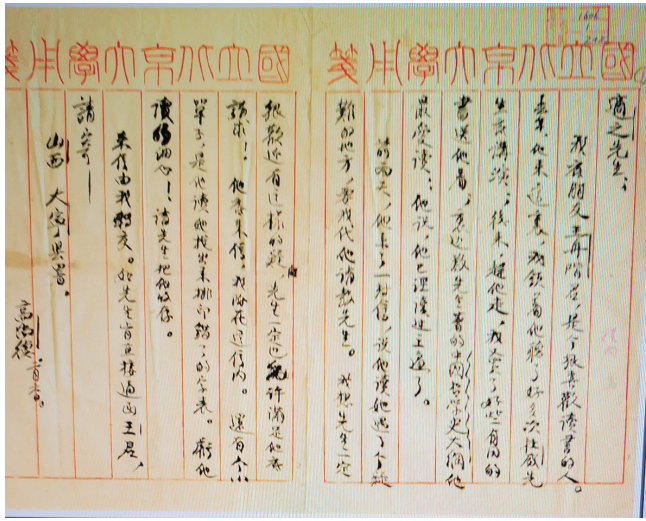 國立北京大學用箋
適之先生：
我有朋友王階君，是个很喜歡讀書的人。
去年，他来這裏，我領着他聽了好多次杜威先
生底講演；後来，趁他走，我了好些有用的
書送他看，裏边數先生著的中國哲學史大綱他
最愛讀，他說，他已經讀过三遍了。
前兩天，他来了一封信，說他讀她遇了个疑
難的地方，要我代他請教先生。我想先生一定
國立北京大學用箋
很歡迎有这樣的疑，先生一定也許滿足他底
請求！他底来信，我附在這信内。還有个小
單子，是他讀她找出来排印錯了的字表。虧他
讀的細心！請先生把他收存。
来信由我轉交。如先生肯直接通函王君，
請寄——
山西大寧縣署。
高尚德